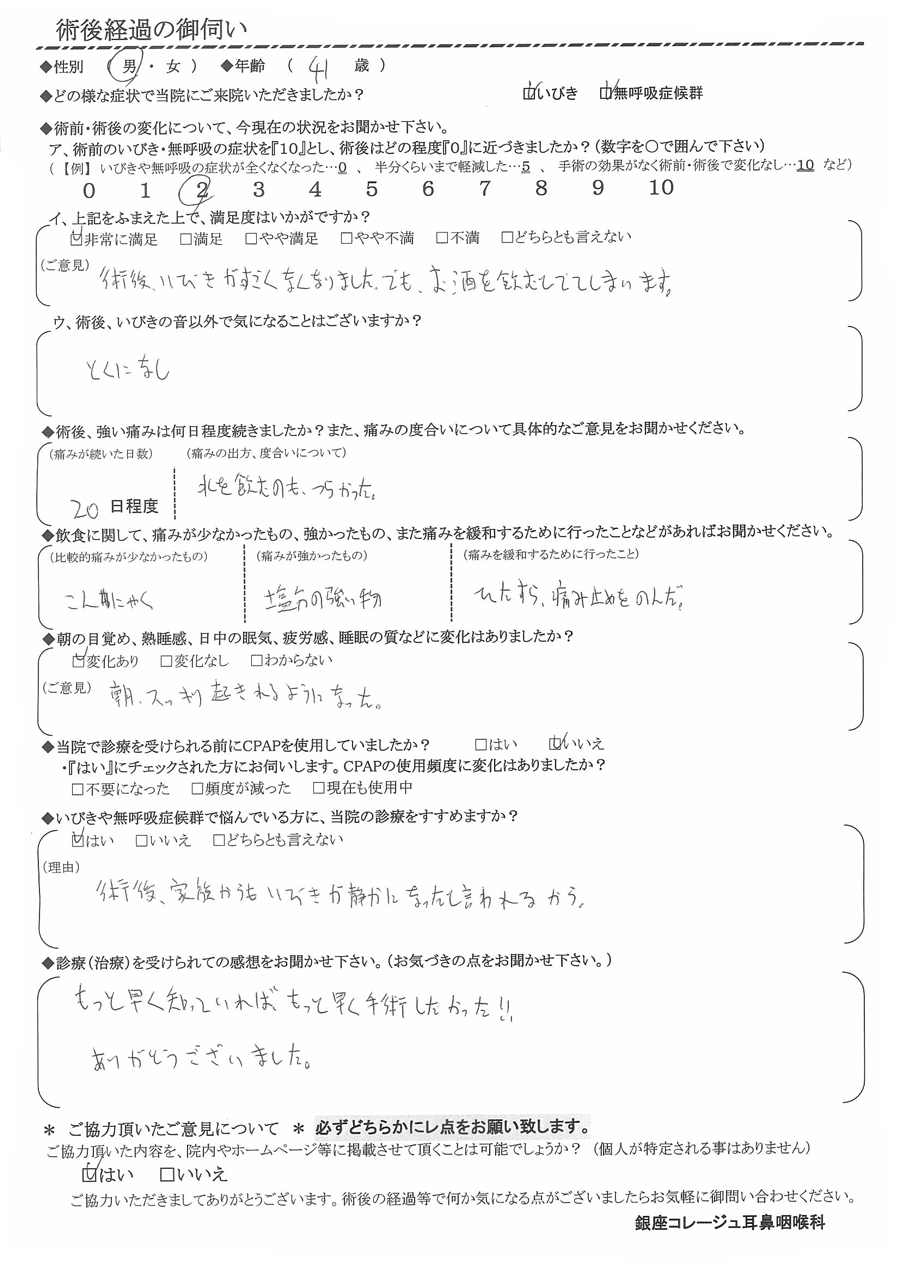 術後経過の御伺い
◆性別 ( 男 ・ 女 ) ◆年齢 ( 41 歳 )
◆どの様な症状で当院にご来院いただきましたか? ☑いびき ☑無呼吸症候群
◆術前・術後の変化について、今現在の状況をお聞かせ下さい。
ア、術前のいびき・無呼吸の症状を『10』とし、術後はどの程度『0』に近づきましたか?(数字を〇で囲んで下さい)
(【例】 いびきや無呼吸の症状が全くなくなった…0 、 半分くらいまで軽減した…5 、 手術の効果がなく術前・術後で変化なし…10 など)
0 1 2 3 4 5 6 7 8 9 10
イ、上記をふまえた上で、満足度はいかがですか?
☑非常に満足 □満足 □やや満足 □やや不満 □不満 □どちらとも言えない
(ご意見) 術後、いびきがすごくなくなりました。でも、お酒を飲むとでてしまいます。
ウ、術後、いびきの音以外で気になることはございますか?
とくになし
◆術後、強い痛みは何日程度続きましたか?また、痛みの度合いについて具体的なご意見をお聞かせください。
(痛みが続いた日数) (痛みの出方、度合いについて)
20 日程度 水を飲むのも、つらかった。
◆飲食に関して、痛みが少なかったもの、強かったもの、また痛みを緩和するために行ったことなどがあればお聞かせください。
(比較的痛みが少なかったもの) (痛みが強かったもの) (痛みを緩和するために行ったこと)
こんにゃく 塩分の強い物 ひたすら、痛み止めをのんだ。
◆朝の目覚め、熟睡感、日中の眠気、疲労感、睡眠の質などに変化はありましたか?
☑変化あり □変化なし □わからない
(ご意見) 朝、スッキリ起きれるようになった。
◆当院で診療を受けられる前にCPAPを使用していましたか? □はい ☑いいえ
・『はい』にチェックされた方にお伺いします。CPAPの使用頻度に変化はありましたか?
□不要になった □頻度が減った □現在も使用中
◆いびきや無呼吸症候群で悩んでいる方に、当院の診療をすすめますか?
☑はい □いいえ □どちらとも言えない
(理由)
術後、家族からもいびきが静かになったと言われるから。
◆診療(治療)を受けられての感想をお聞かせ下さい。(お気づきの点をお聞かせ下さい。)
もっと早く知っていれば、もっと早く手術したかった!!
ありがとうございました。
＊ ご協力頂いたご意見について ＊ 必ずどちらかにレ点をお願い致します。
ご協力頂いた内容を、院内やホームページ等に掲載させて頂くことは可能でしょうか? (個人が特定される事はありません)
☑はい □いいえ
ご協力いただきましてありがとうございます。術後の経過等で何か気になる点がございましたらお気軽に御問い合わせください。
銀座コレージュ耳鼻咽喉科